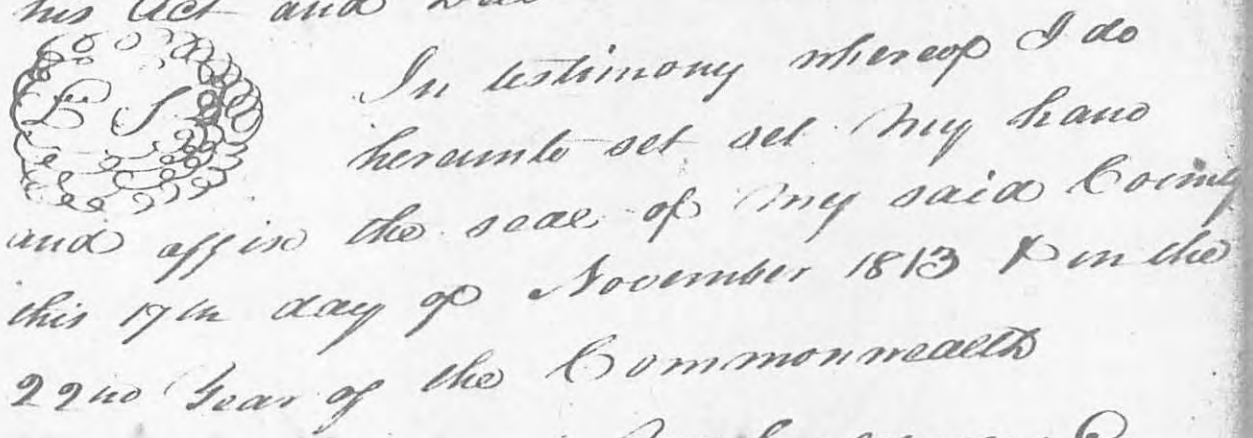 his Act and
L S
In testimony whereof I do
hereunto set set my hand
and affix the seal of my said County
this 17th day of November 1813 & in the
22nd Year of the Commonwealth